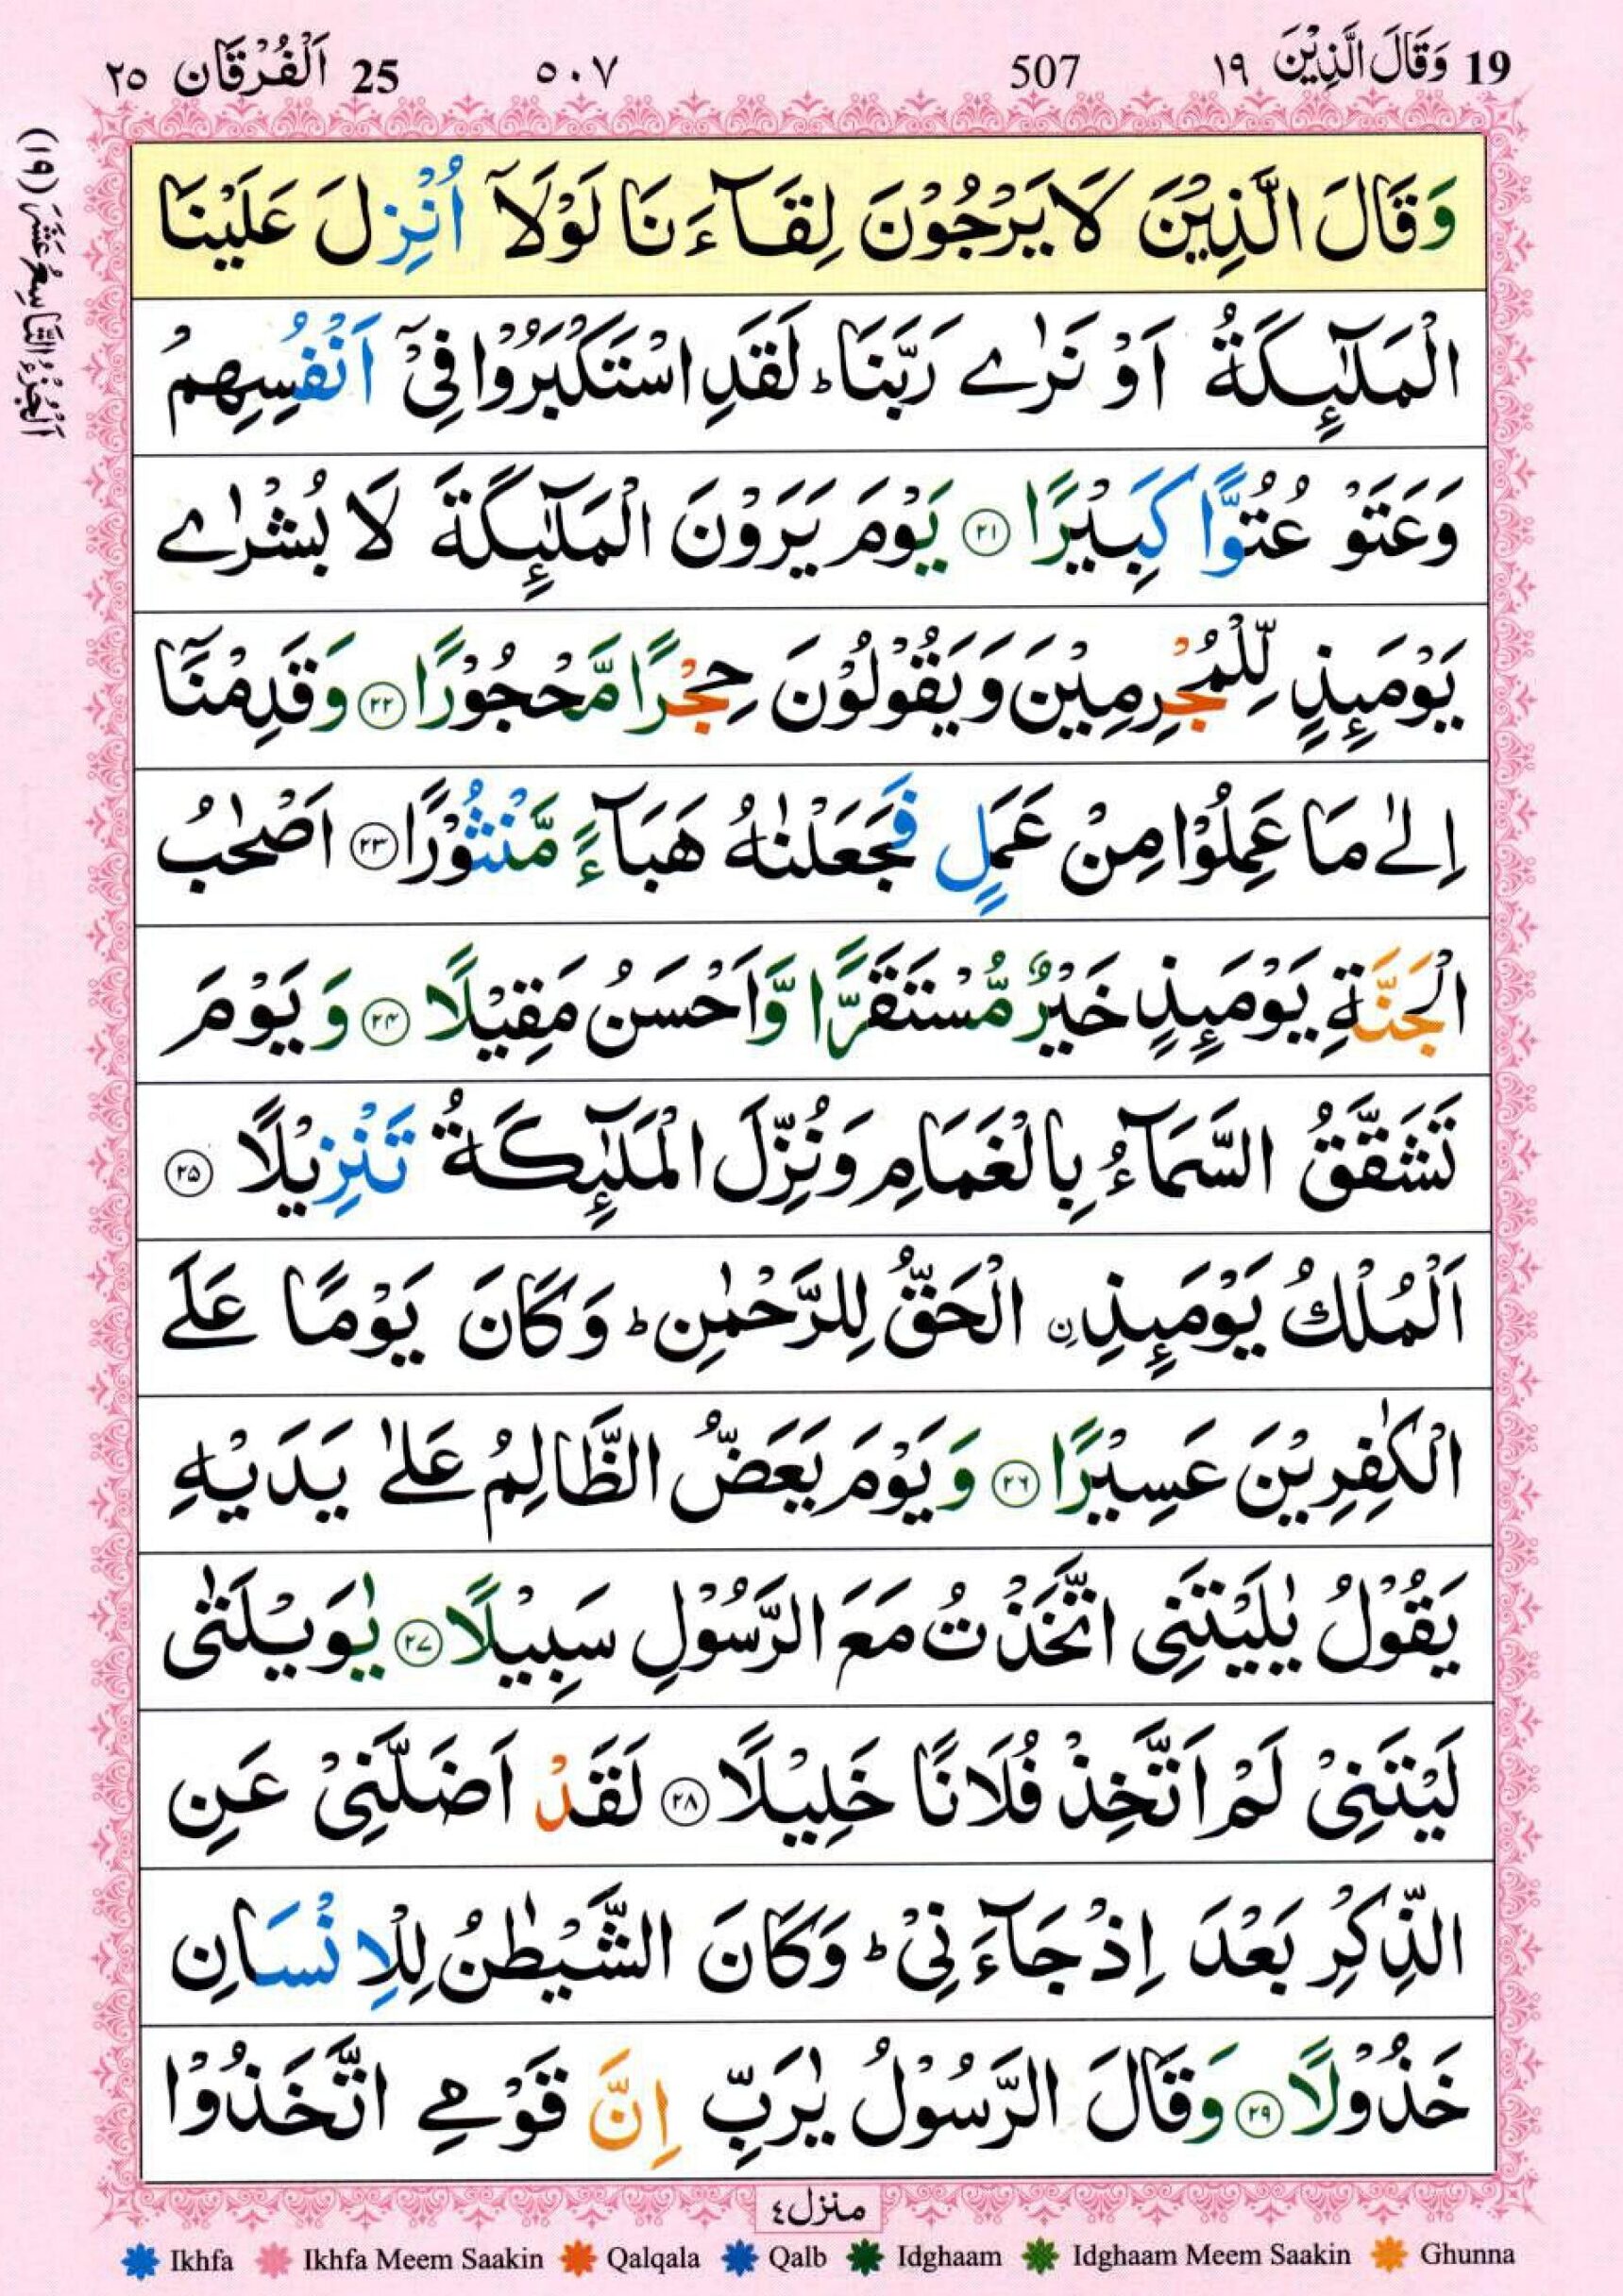 19 وَقَالَ الَّذِيْنَ ١٩ 507 ٥٠٧ 25 اَلْفُرْقَان ٢٥
اَلْجُزْءُ التَّاسِعُ عَشَرَ (١٩)
وَقَالَ الَّذِيْنَ لَا يَرْجُوْنَ لِقَآءَنَا لَوْلَآ اُنْزِلَ عَلَيْنَا
الْمَلٰٓئِكَةُ اَوْ نَرٰے رَبَّنَا ؕ لَقَدِ اسْتَكْبَرُوْا فِىْٓ اَنْفُسِهِمْ
وَعَتَوْ عُتُوًّا كَبِيْرًا ۝٢١ يَوْمَ يَرَوْنَ الْمَلٰٓئِكَةَ لَا بُشْرٰے
يَوْمَئِذٍ لِّلْمُجْرِمِيْنَ وَيَقُوْلُوْنَ حِجْرًا مَّحْجُوْرًا ۝٢٢ وَقَدِمْنَآ
اِلٰے مَا عَمِلُوْا مِنْ عَمَلٍ فَجَعَلْنٰهُ هَبَآءً مَّنْثُوْرًا ۝٢٣ اَصْحٰبُ
الْجَنَّةِ يَوْمَئِذٍ خَيْرٌ مُّسْتَقَرًّا وَّاَحْسَنُ مَقِيْلًا ۝٢٤ وَيَوْمَ
تَشَقَّقُ السَّمَآءُ بِالْغَمَامِ وَنُزِّلَ الْمَلٰٓئِكَةُ تَنْزِيْلًا ۝٢٥
اَلْمُلْكُ يَوْمَئِذِ ۨ الْحَقُّ لِلرَّحْمٰنِ ؕ وَكَانَ يَوْمًا عَلَے
الْكٰفِرِيْنَ عَسِيْرًا ۝٢٦ وَيَوْمَ يَعَضُّ الظَّالِمُ عَلٰے يَدَيْهِ
يَقُوْلُ يٰلَيْتَنِى اتَّخَذْتُ مَعَ الرَّسُوْلِ سَبِيْلًا ۝٢٧ يٰوَيْلَتٰى
لَيْتَنِىْ لَمْ اَتَّخِذْ فُلَانًا خَلِيْلًا ۝٢٨ لَقَدْ اَضَلَّنِىْ عَنِ
الذِّكْرِ بَعْدَ اِذْ جَآءَنِىْ ؕ وَكَانَ الشَّيْطٰنُ لِلْاِنْسَانِ
خَذُوْلًا ۝٢٩ وَقَالَ الرَّسُوْلُ يٰرَبِّ اِنَّ قَوْمِے اتَّخَذُوْا
منزل ٤
Ikhfa Ikhfa Meem Saakin Qalqala Qalb Idghaam Idghaam Meem Saakin Ghunna